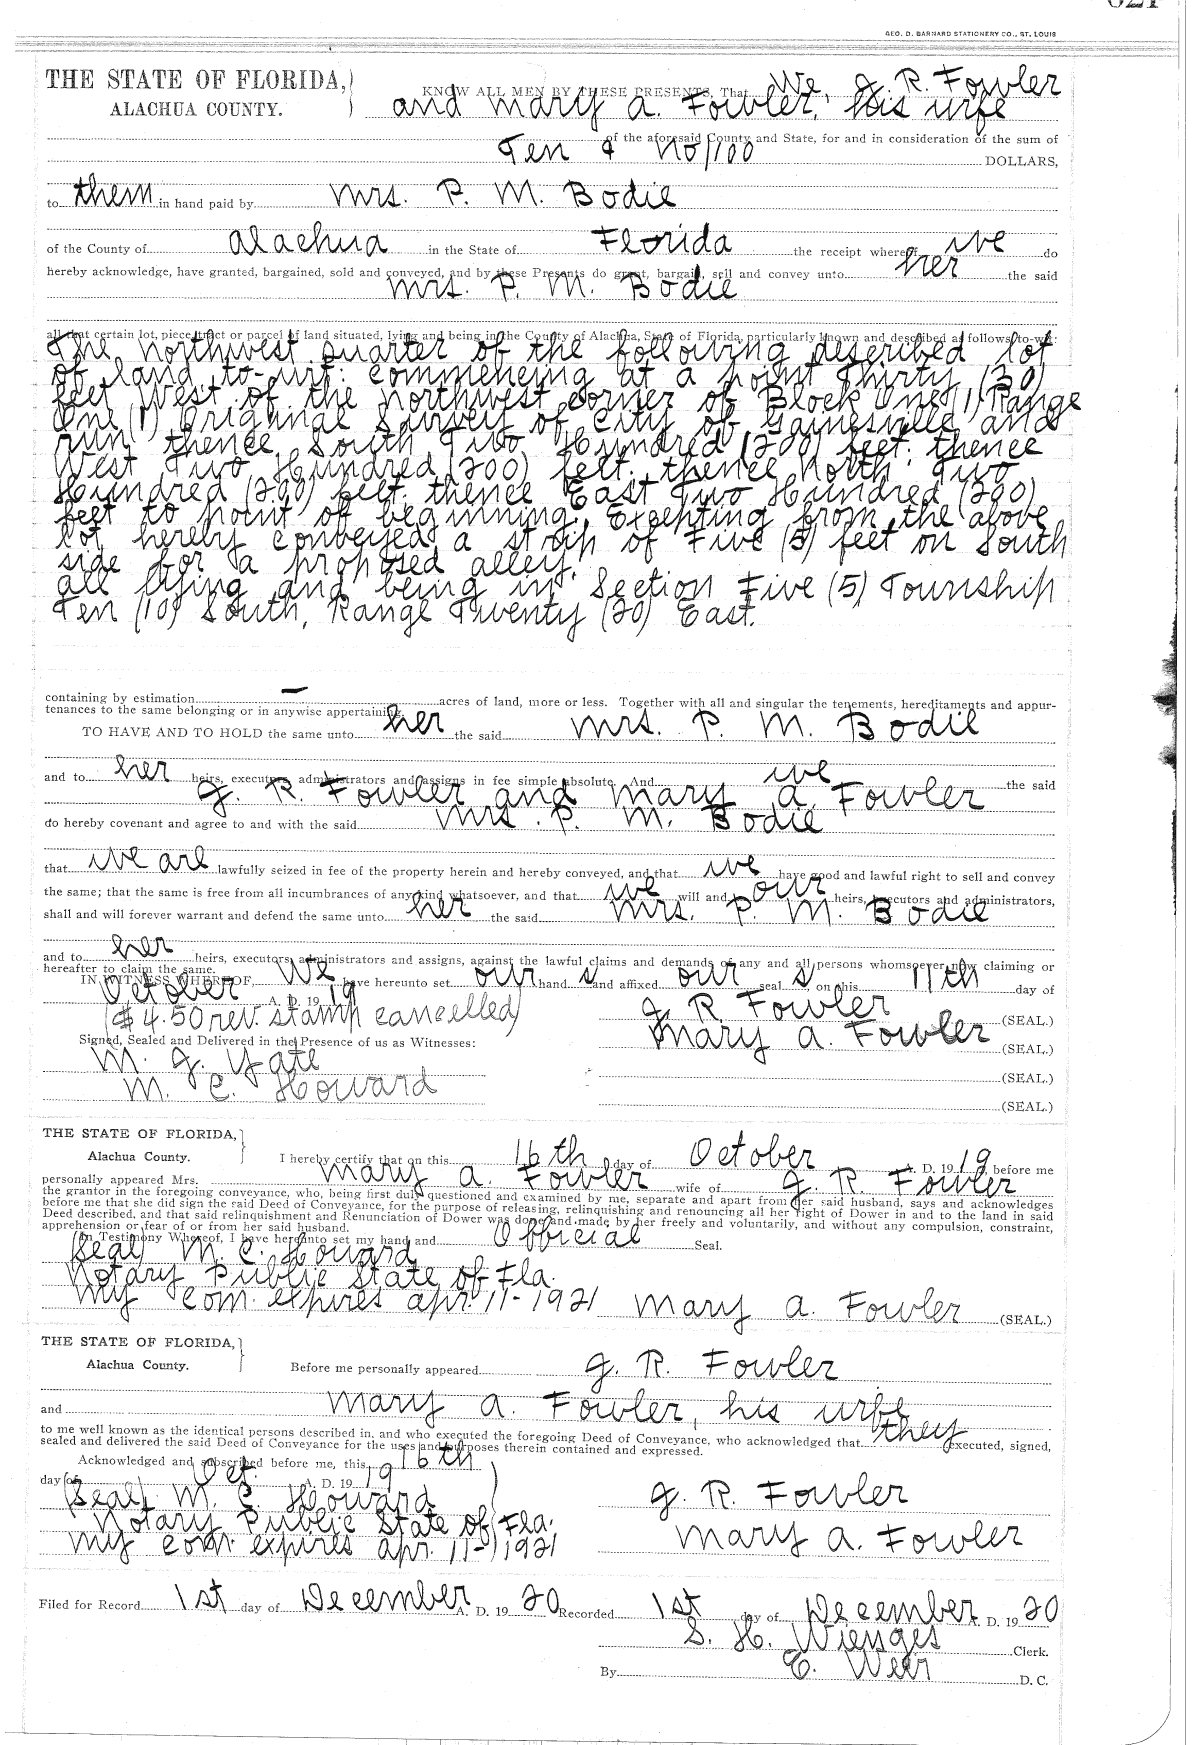 GEO. D. BARNARD STATIONERY CO., ST. LOUIS
THE STATE OF FLORIDA,
ALACHUA COUNTY.
KNOW ALL MEN BY THESE PRESENTS, That We, J. R. Fowler
and Mary A. Fowler, his wife
of the aforesaid County and State, for and in consideration of the sum of
Ten & no/100 DOLLARS,
to them in hand paid by Mrs. P. M. Bodie
of the County of Alachua in the State of Florida the receipt whereof we do
hereby acknowledge, have granted, bargained, sold and conveyed, and by these Presents do grant, bargain, sell and convey unto her the said
Mrs. P. M. Bodie
all that certain lot, piece, tract or parcel of land situated, lying and being in the County of Alachua, State of Florida, particularly known and described as follows, to-wit:
The northwest quarter of the following described lot
of land to-wit: commencing at a point Thirty (30)
feet West of the northwest corner of Block One (1) Range
One (1) Original Survey of City of Gainesville and
run thence South Two Hundred (200) feet. thence
West Two Hundred (200) feet. thence North Two
Hundred (200) feet. thence East Two Hundred (200)
feet to point of beginning, Excepting from the above
lot hereby conveyed a strip of Five (5) feet on South
side for a proposed alley.
all lying and being in Section Five (5) Township
Ten (10) South, Range Twenty (20) East.
containing by estimation — acres of land, more or less. Together with all and singular the tenements, hereditaments and appur-
tenances to the same belonging or in anywise appertaining.
TO HAVE AND TO HOLD the same unto her the said Mrs. P. M. Bodie
and to her heirs, executors, administrators and assigns in fee simple absolute. And we the said
J. R. Fowler and Mary A. Fowler
do hereby covenant and agree to and with the said Mrs. P. M. Bodie
that we are lawfully seized in fee of the property herein and hereby conveyed, and that we have good and lawful right to sell and convey
the same; that the same is free from all incumbrances of any kind whatsoever, and that we will and our heirs, executors and administrators,
shall and will forever warrant and defend the same unto her the said Mrs. P. M. Bodie
and to her heirs, executors, administrators and assigns, against the lawful claims and demands of any and all persons whomsoever now claiming or
hereafter to claim the same.
IN WITNESS WHEREOF, We have hereunto set our hand s and affixed our seal s, on this 11th day of
October A. D. 19 19
($4.50 rev. stamp cancelled)
J. R. Fowler (SEAL.)
Signed, Sealed and Delivered in the Presence of us as Witnesses:
Mary A. Fowler (SEAL.)
M. J. Yate
(SEAL.)
M. C. Howard
(SEAL.)
THE STATE OF FLORIDA,
Alachua County.
I hereby certify that on this 16th day of October A. D. 19 19 before me
personally appeared Mrs. Mary A. Fowler wife of J. R. Fowler
the grantor in the foregoing conveyance, who, being first duly questioned and examined by me, separate and apart from her said husband, says and acknowledges
before me that she did sign the said Deed of Conveyance, for the purpose of releasing, relinquishing and renouncing all her right of Dower in and to the land in said
Deed described, and that said relinquishment and Renunciation of Dower was done and made by her freely and voluntarily, and without any compulsion, constraint,
apprehension or fear of or from her said husband.
In Testimony Whereof, I have hereunto set my hand and Official Seal.
(Seal) M. C. Howard
Notary Public State of Fla.
My com. expires Apr. 11-1921
Mary A. Fowler (SEAL.)
THE STATE OF FLORIDA,
Alachua County.
Before me personally appeared J. R. Fowler
and Mary A. Fowler, his wife
to me well known as the identical persons described in, and who executed the foregoing Deed of Conveyance, who acknowledged that they executed, signed,
sealed and delivered the said Deed of Conveyance for the uses and purposes therein contained and expressed.
Acknowledged and subscribed before me, this 16th
day of Oct. A. D. 19 19
(Seal) M. C. Howard
Notary Public State of Fla.
My com. expires Apr. 11-1921
J. R. Fowler
Mary A. Fowler
Filed for Record 1st day of December A. D. 19 20 Recorded 1st day of December A. D. 19 20
S. H. Wienges Clerk.
By E. Weir D. C.